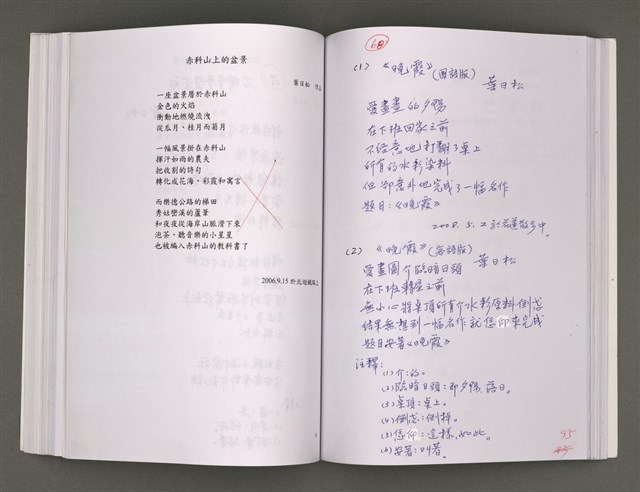 赤科山上的盆景
葉日松 作品
一座盆景層於赤科山
金色的火焰
衝動地燃燒流洩
從瓜月、桂月而菊月
一幅風景掛在赤科山
揮汗如雨的農夫
把收割的詩句
轉化成花海、彩霞和寓言
而樂德公路的梯田
秀姑巒溪的蘆葦
和夜夜從海岸山脈滑下來
泡茶、聽音樂的小星星
也被編入赤科山的教科書了
2006.9.15 於
68
(1) 《晚霞》(國語版)
葉日松
愛畫畫的夕陽
在下班回家之前
不經意地打翻了桌上
所有的水彩染料
但卻意外地完成了一幅名作
題目:《晚霞》
2008.5.2 於花蓮散步中。
(2) 《晚霞》(客語版)
葉日松
愛畫圖介臨暗日頭
在下班轉屋之前
無小心將桌頂所有介水彩原料倒忒
結果無想到一幅名作就恁仰來完成
題目安著《晚霞》
注釋:
(1)介:的。
(2)臨暗日頭:即夕陽、落日。
(3)桌頂:桌上。
(4)倒忒:倒掉。
(5)恁仰:這樣、如此。
(6)安著:叫著。
95